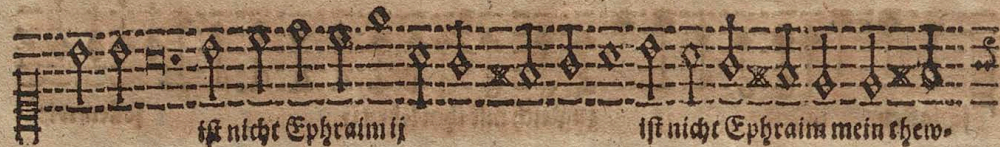 ist nicht Ephraim ij ist nicht Ephraim mein thew-